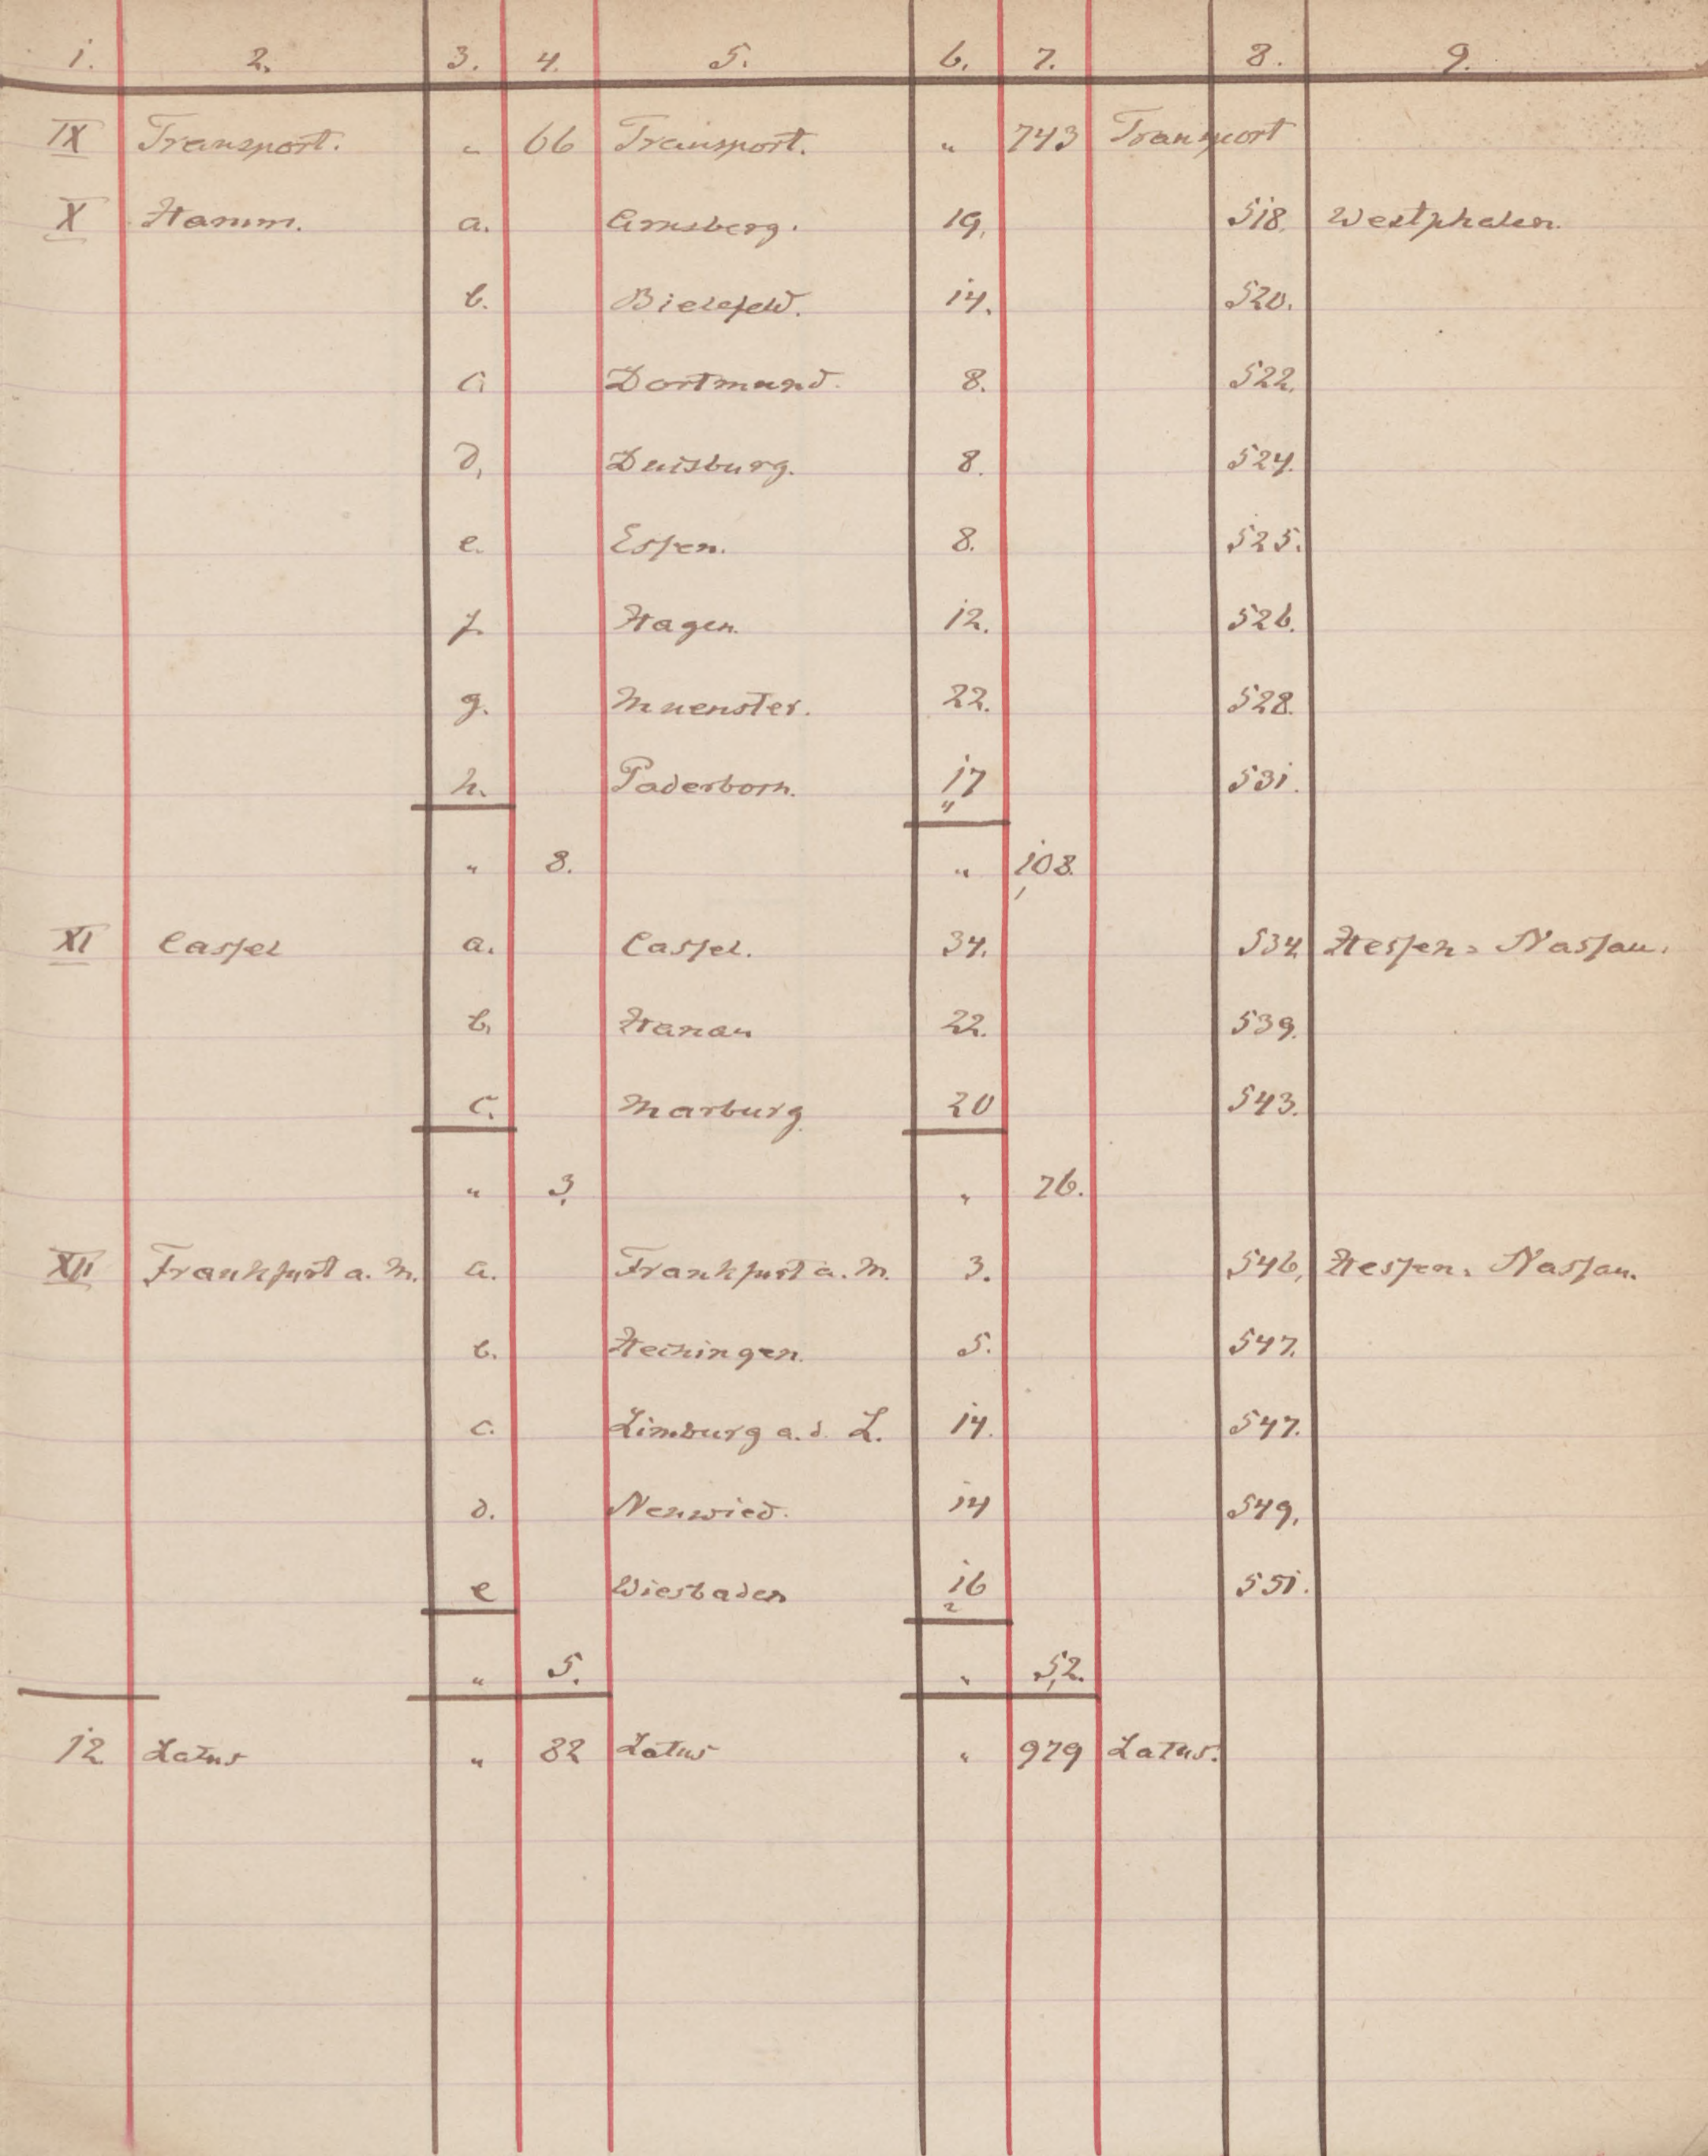 1. 2. 3. 4. 5. 6. 7. 8. 9.
IX Transport. " 66 Transport. " 743 Transport
X Hamm. a. Arnsberg. 19. 518. Westphalen.
b. Bielefeld. 14. 520.
c. Dortmund. 8. 522.
d. Duisburg. 8. 524.
e. Essen. 8. 525.
f. Hagen. 12. 526.
g. Muenster. 22. 528.
h. Paderborn. 17 531.
" 8. " 108.
XI Cassel a. Cassel. 34. 534 Hessen-Nassau.
b. Hanau 22. 539.
c. Marburg 20 543.
" 3. " 76.
XII Frankfurt a. M. a. Frankfurt a. M. 3. 546. Hessen-Nassau.
b. Hechingen. 5. 547.
c. Limburg a. d. L. 14. 547.
d. Neuwied. 14 549.
e Wiesbaden 16 551.
" 5. " 52.
12 Latus " 82 Latus " 979 Latus.